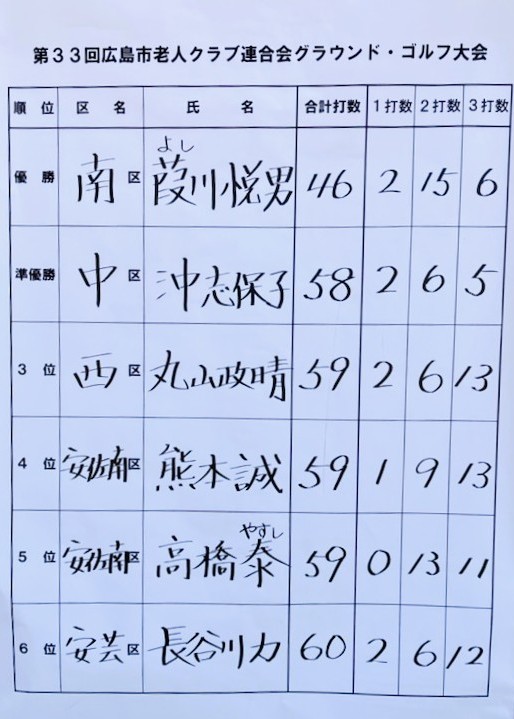 第33回広島市老人クラブ連合会グラウンド・ゴルフ大会
順位 区名 氏名 合計打数 1打数 2打数 3打数
よし
優勝 南区 葭川悦男 46 2 15 6
準優勝 中区 沖志保子 58 2 6 5
3位 西区 丸山政晴 59 2 6 13
4位 安佐南区 熊本誠 59 1 9 13
やすし
5位 安佐南区 高橋泰 59 0 13 11
6位 安芸区 長谷川力 60 2 6 12